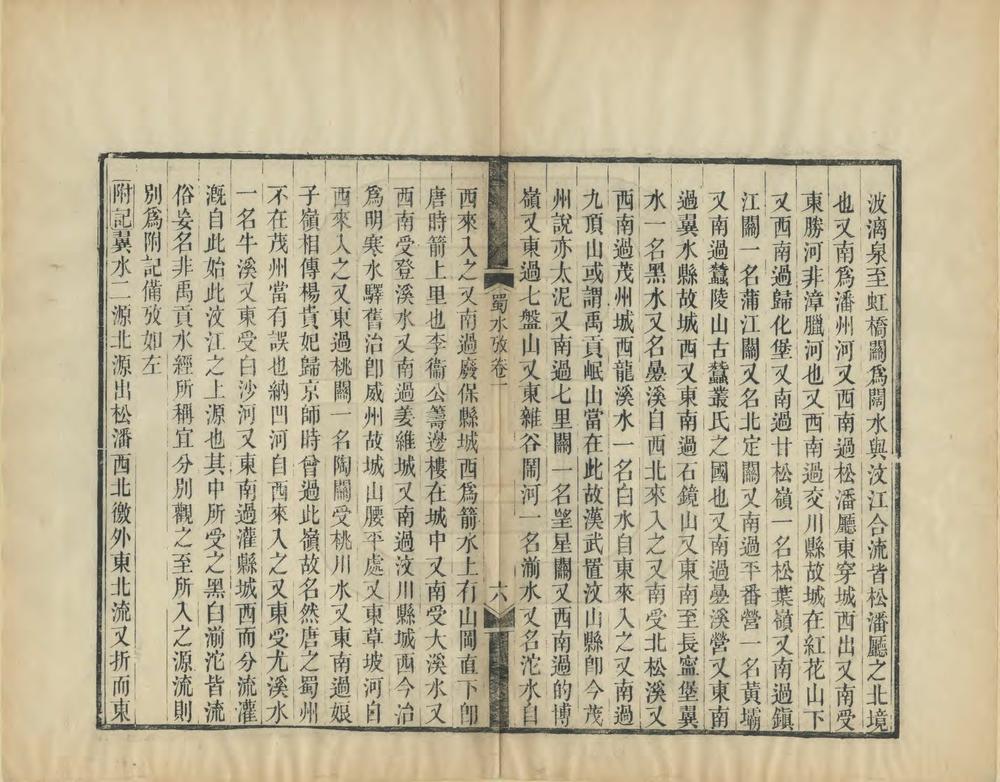 波漓泉至虹橋關爲闊水與汶江合流皆松潘廳之北境
也又南爲潘州河又西南過松潘廳東穿城西出又南受
東勝河非漳臘河也又西南過交川縣故城在紅花山下
又西南過歸化堡又南過甘松嶺一名松葉嶺又南過鎮
江關一名蒲江關又名北定關又南過平番營一名黃壩
又南過蠶陵山古蠶叢氏之國也又南過疊溪營又東南
過翼水縣故城西又東南過石鏡山又東南至長寧堡翼
水一名黑水又名疊溪自西北來入之又南受北松溪又
西南過茂州城西龍溪水一名白水自東來入之又南過
九頂山或謂禹貢岷山當在此故漢武置汶山縣卽今茂
州說亦太泥又南過七里關一名望星關又西南過的博
嶺又東過七盤山又東雜谷鬧河一名湔水又名沱水自
蜀水攷卷一
六
西來入之又南過廢保縣城西爲箭水上有山岡直下卽
唐時箭上里也李衞公籌邊樓在城中又南受大溪水又
西南受登溪水又南過姜維城又南過汶川縣城西今治
爲明寒水驛舊治卽威州故城山腰平處又東草坡河自
西來入之又東過桃關一名陶關受桃川水又東南過娘
子嶺相傳楊貴妃歸京師時曾過此嶺故名然唐之蜀州
不在茂州當有誤也納凹河自西來入之又東受尤溪水
一名牛溪又東受白沙河又東南過灌縣城西而分流灌
漑自此始此汶江之上源也其中所受之黑白湔沱皆流
俗妄名非禹貢水經所稱宜分別觀之至所入之源流則
別爲附記備攷如左
附記翼水二源北源出松潘西北徼外東北流又折而東